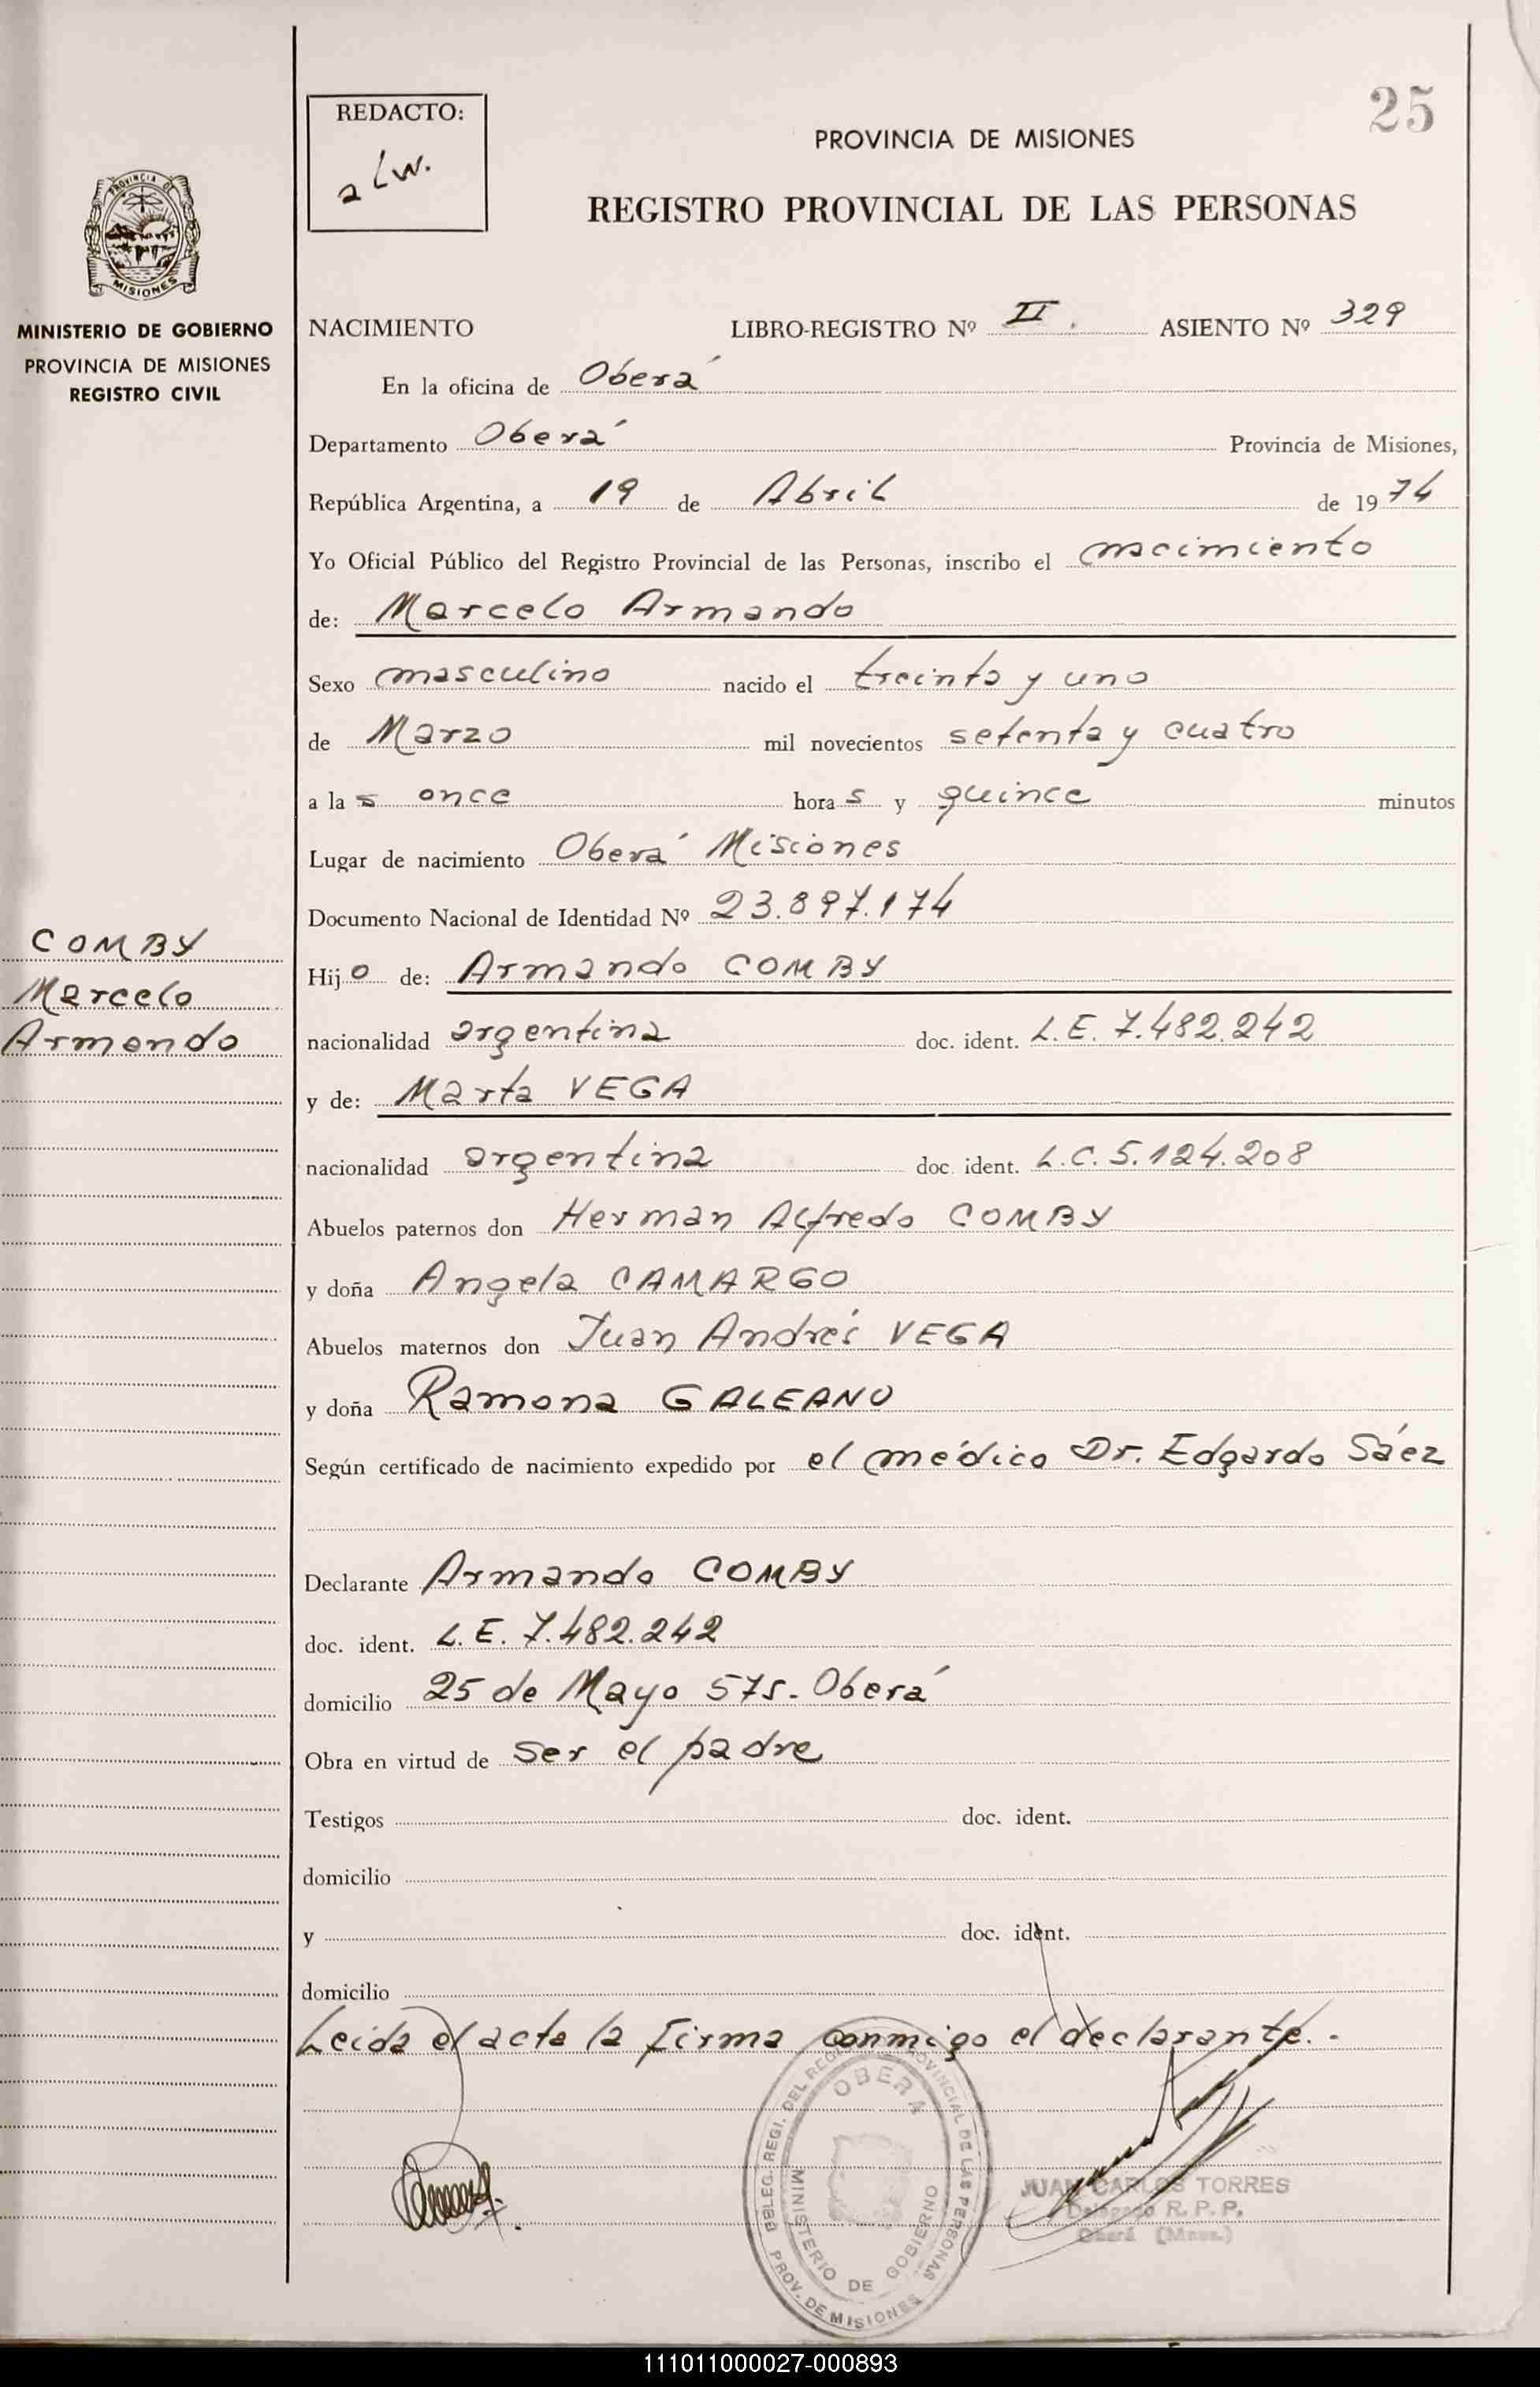 25
REDACTO:
a Lw.
PROVINCIA DE MISIONES
REGISTRO PROVINCIAL DE LAS PERSONAS
PROVINCIA DE
MISIONES
MINISTERIO DE GOBIERNO
PROVINCIA DE MISIONES
REGISTRO CIVIL
NACIMIENTO LIBRO-REGISTRO Nº II. ASIENTO Nº 329
En la oficina de Oberá
Departamento Oberá Provincia de Misiones,
República Argentina, a 19 de Abril de 1974
Yo Oficial Público del Registro Provincial de las Personas, inscribo el nacimiento
de: Marcelo Armando
Sexo masculino nacido el treinta y uno
de Marzo mil novecientos setenta y cuatro
a las once horas y quince minutos
Lugar de nacimiento Oberá Misiones
Documento Nacional de Identidad Nº 23.897.174
COMBY
Marcelo
Armando
Hijo de: Armando COMBY
nacionalidad argentina doc. ident. L.E. 7.482.242
y de: Marta VEGA
nacionalidad argentina doc. ident. L.C. 5.124.208
Abuelos paternos don Herman Alfredo COMBY
y doña Angela CAMARGO
Abuelos maternos don Juan Andrés VEGA
y doña Ramona GALEANO
Según certificado de nacimiento expedido por el médico Dr. Edgardo Sáez
Declarante Armando COMBY
doc. ident. L.E. 7.482.242
domicilio 25 de Mayo 575- Oberá
Obra en virtud de ser el padre
Testigos doc. ident.
domicilio
y doc. ident.
domicilio
Leida el acta la firma conmigo el declarante.-
DELEG. REGI. DEL REG. PROVINCIAL DE LAS PERSONAS
OBERA
MINISTERIO DE GOBIERNO
PROV. DE MISIONES
JUAN CARLOS TORRES
Delegado R. P. P.
Oberá (Mnes.)
111011000027-000893